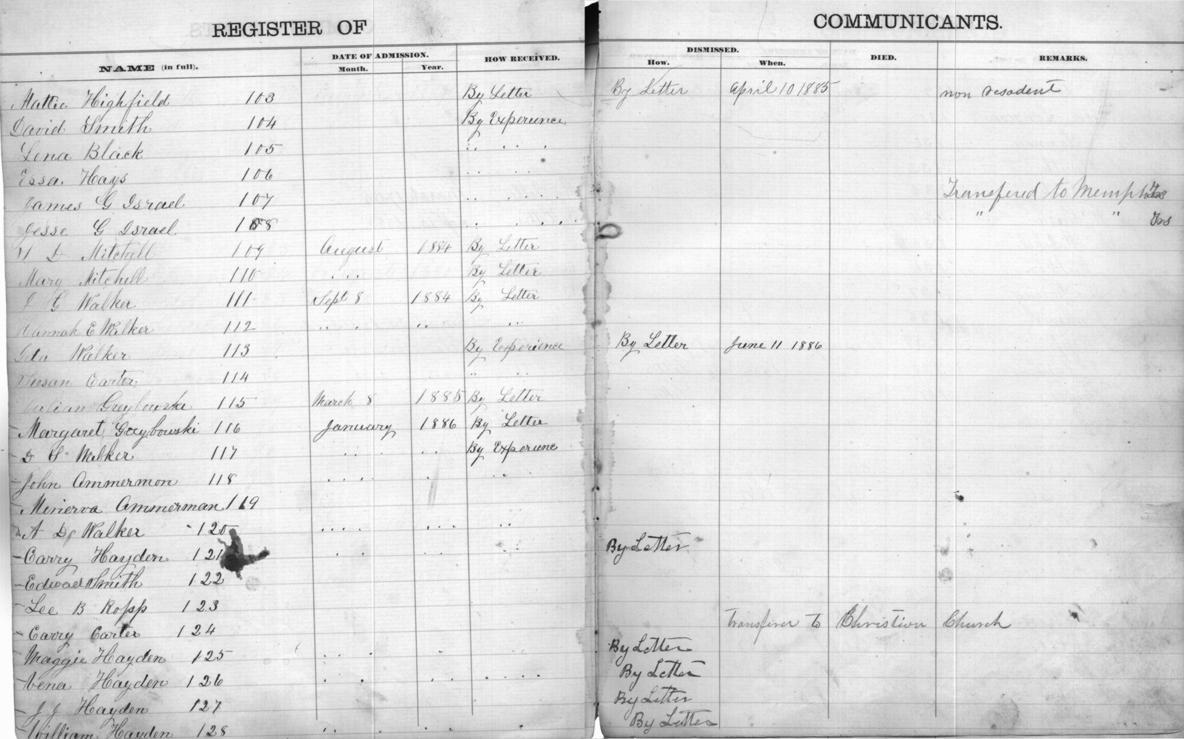 REGISTER OF COMMUNICANTS.
NAME (in full). DATE OF ADMISSION. HOW RECEIVED. DISMISSED. DIED. REMARKS.
Month. Year. How. When.
Mattie Highfield 103 By Letter By Letter April 10 1885 non resadent
David Smith 104 By Experience
Lena Black 105 " " "
Essa Hays 106 " " "
James G Israel 107 " " " Transfered to Memphis Tns
Jesse G Israel 108 " " " " " Tns
D Mitchell 109 August 1884 By Letter
Mary Mitchell 110 " " " By Letter
G Walker 111 Sept 8 1884 By Letter
Hannah E Walker 112 " " " " " "
Ida Walker 113 By Experience By Letter June 11 1886
Susan Carter 114 " "
Julian Greybowska 115 March 8 1885 By Letter
Margaret Greybowski 116 January 1886 By Letter
D S Walker 117 " " " By Experience
John Ammermon 118 " " " " "
Minerva Ammerman 119
A D Walker 120 " " " " " "
Carry Hayden 121 " " " " By Letter
Edward Smith 122
Lee B Ropp 123
Carry Carter 124 transferer to Christion Church
Maggie Hayden 125 " " " By Letter
Vena Hayden 126 " " " " " By Letter
J J Hayden 127 By Letter
William Hayden 128 " " " " By Letter